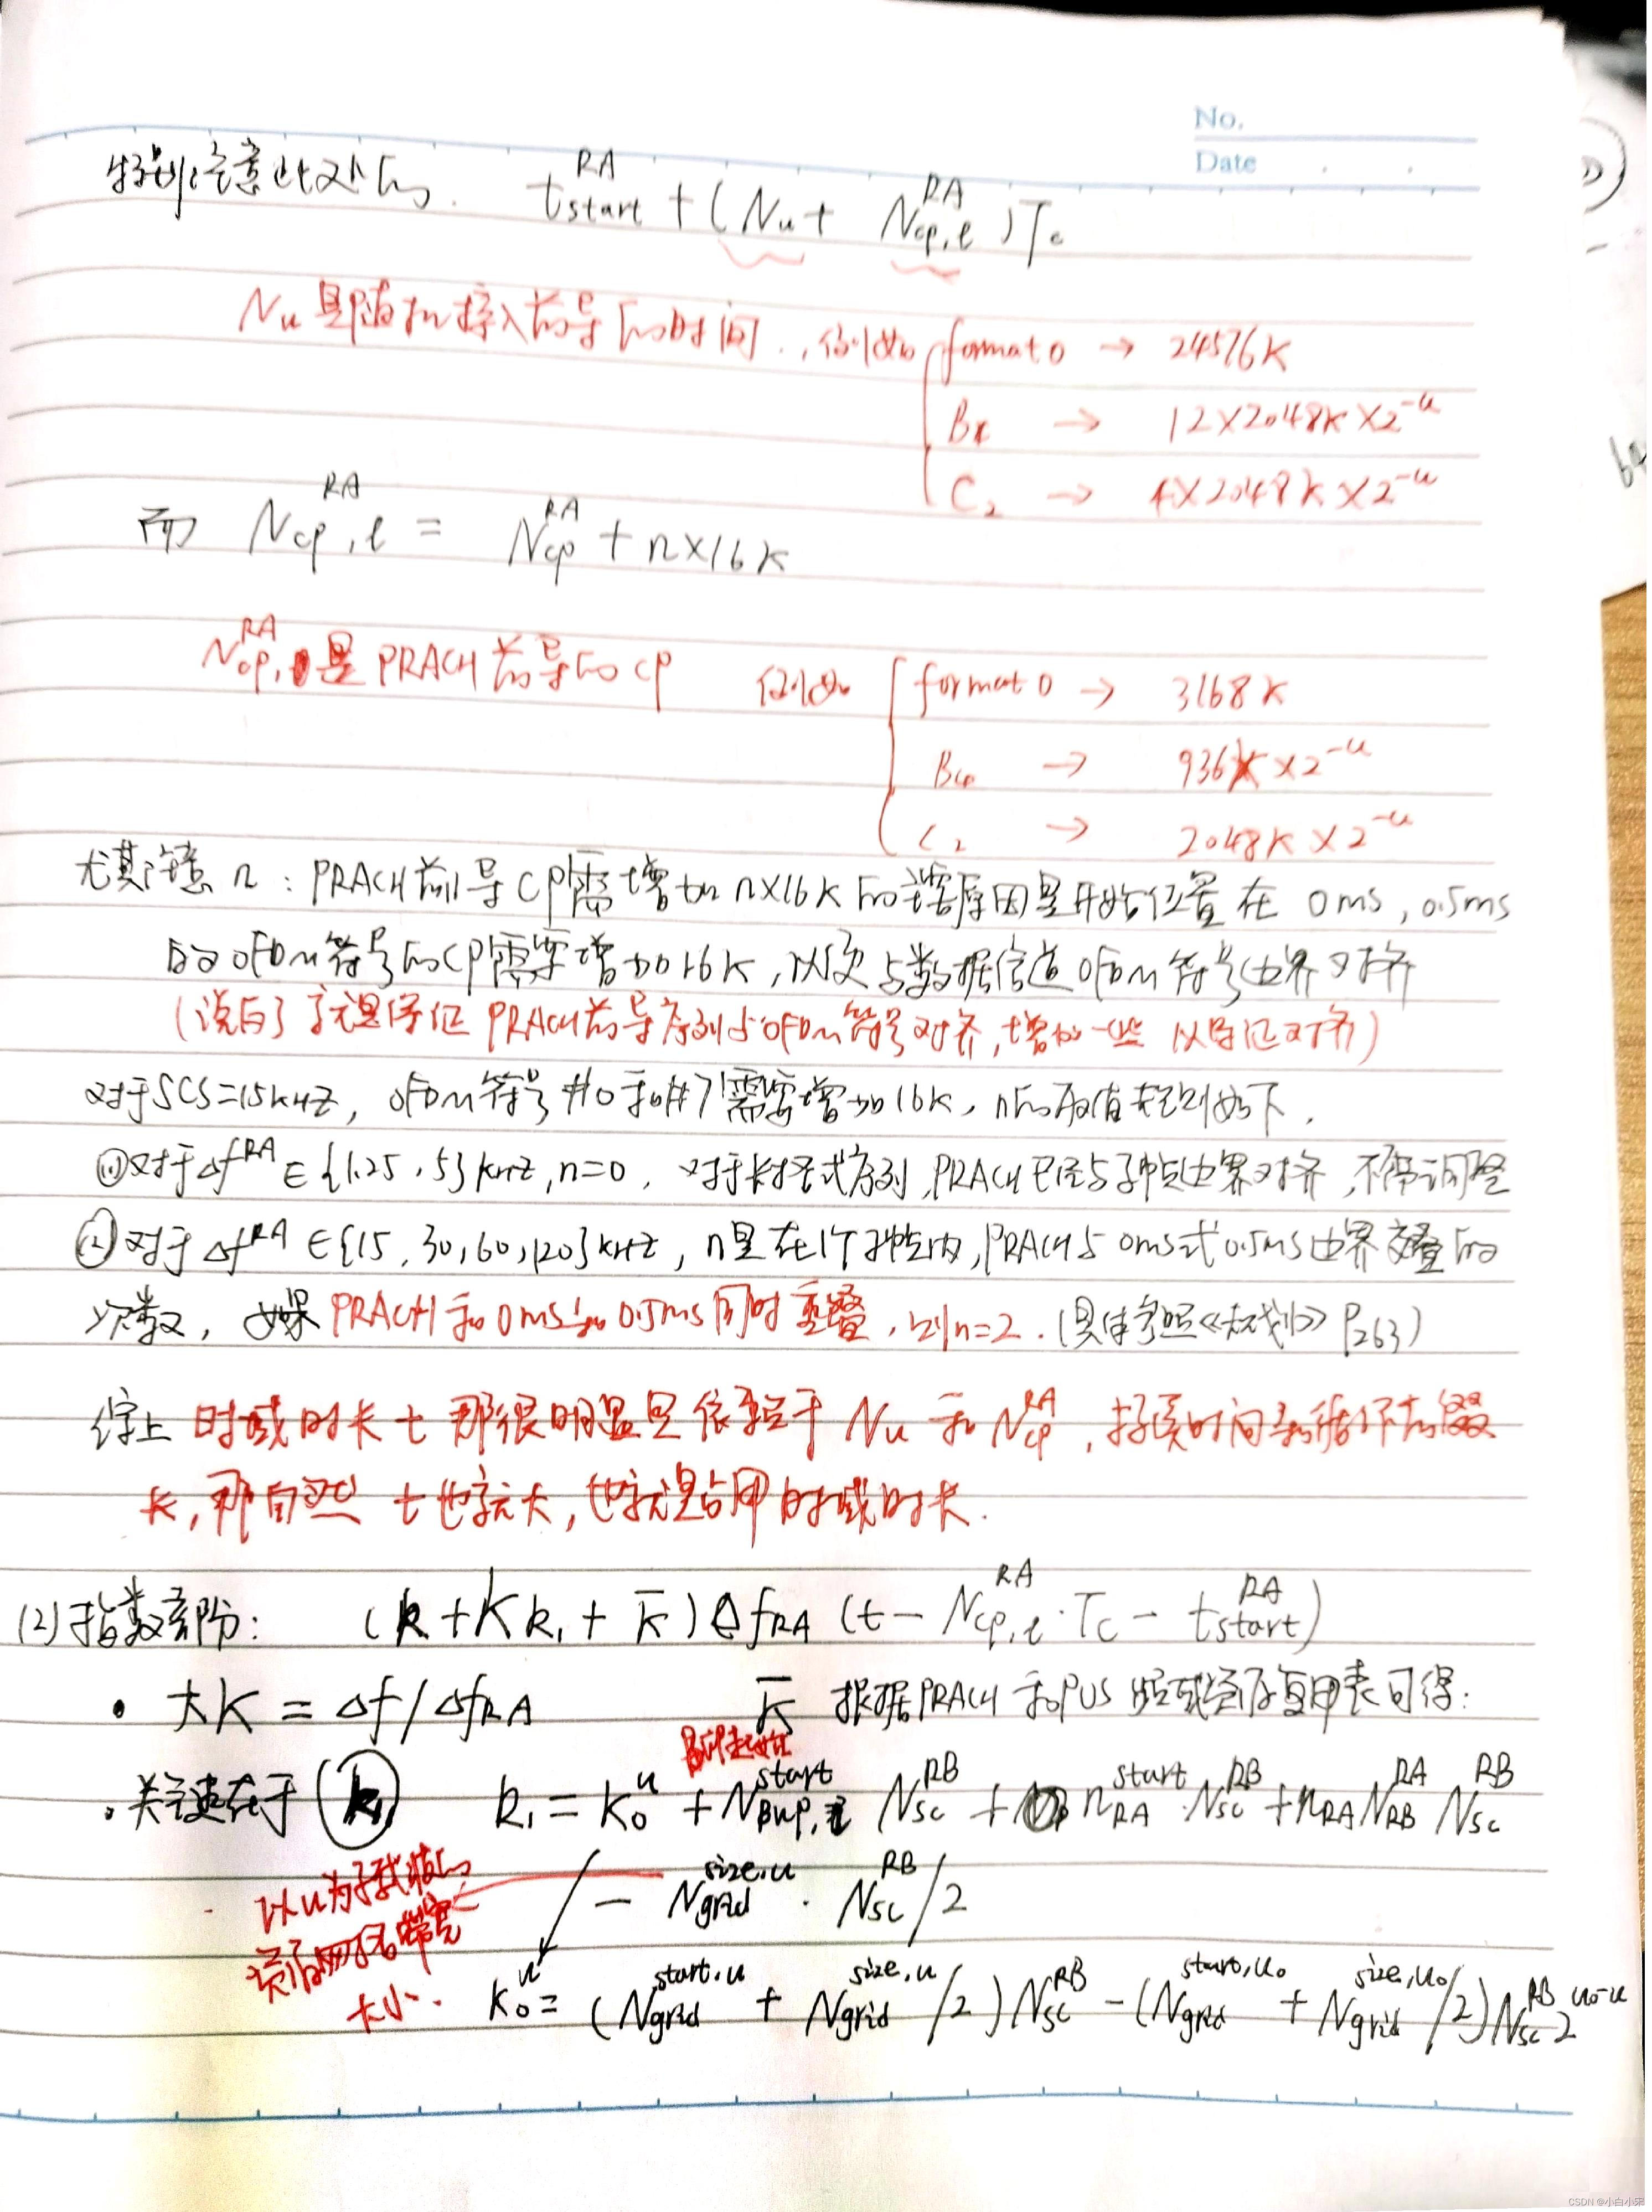 No.
Date
特别注意此处的. t_start^RA + (N_u + N_cp,l^RA) T_c
N_u 是随机接入前导的时间., 例如 format 0 → 24576K
B4 → 12×2048K×2^-u
C2 → 4×2048K×2^-u
而 N_cp,l^RA = N_cp^RA + n×16K
N_cp,^RA 是PRACH前导的CP 例如 format 0 → 3168K
B4 → 936K×2^-u
C2 → 2048K×2^-u
尤其注意 n : PRACH前导CP需增加 n×16K的主要原因是开始位置在 0ms, 0.5ms
的OFDM符号的CP需要增加16K, 以便与数据信道OFDM符号边界对齐
(说白了就是保证PRACH前导序列与OFDM符号对齐, 增加一些以保证对齐)
对于SCS=15kHz, OFDM符号#0和#7需要增加16K, n的取值规则如下.
① 对于Δf^RA ∈ {1.25, 5} kHz, n=0. 对于长格式序列, PRACH已经与子帧边界对齐, 不需调整
② 对于Δf^RA ∈ {15, 30, 60, 120} kHz, n是在1个子帧内, PRACH与0ms或0.5ms边界交叠的
次数, 如果PRACH和0ms和0.5ms同时重叠, 则n=2. (具体参照《规划》P263)
综上 时域时长t那很明显是依赖于 N_u 和 N_cp^RA, 持续时间和循环前缀
长, 那自然t也就大, 也就是占用时域时长.
(2) 指数部份: (k + Kk_1 + k̄) Δf_RA (t − N_cp,l^RA · T_c − t_start^RA)
· 大K = Δf/Δf_RA k̄ 根据PRACH和PUS频域资源复用表可得:
· 关键在于 k_1 k_1 = k_0^u + N_BWP,i^start N_sc^RB + n_RA^start · N_sc^RB + n_RA N_RB^RA N_sc^RB
− N_grid^size,u · N_sc^RB/2
以u为子载波的
资源网格带宽
大小.
k_0^u = (N_grid^start,u + N_grid^size,u/2) N_sc^RB − (N_grid^start,u0 + N_grid^size,u0/2) N_sc^RB 2^u0-u
CSDN @小白小宋